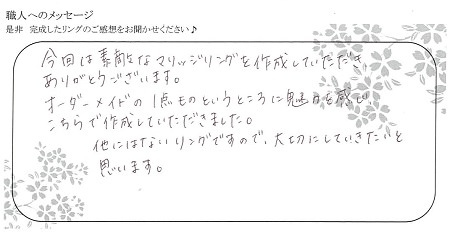 職人へのメッセージ
是非　完成したリングのご感想をお聞かせください♪
今回は素敵なマリッジリングを作成していただき、
ありがとうございます。
オーダーメイドの1点ものというところに魅力を感じ、
こちらで作成していただきました。
他にはないリングですので、大切にしていきたいと
思います。